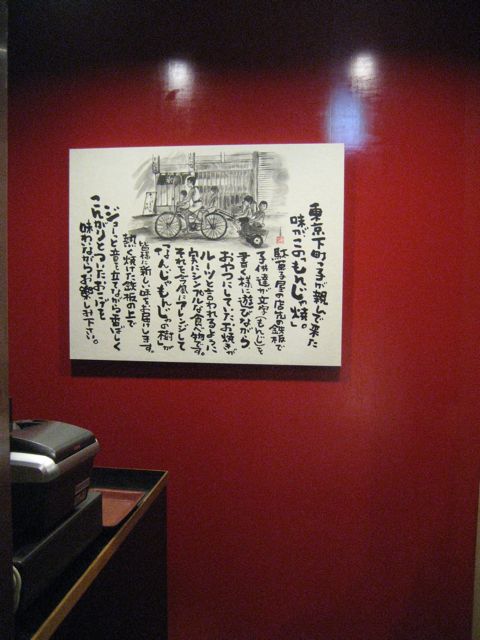 東京下町っ子が親しんで来た
味がこの「もんじゃ焼」
駄菓子屋の店先の鉄板で
子供達が文字（もんじ）を
書く様に遊びながら
おやつにしていたお焼きが
ルーツと言われるように
実にシンプルな食べ物です。
それを今風にアレンジして
「なんじゃもんじゃの樹」が
皆様に新しい味をお届けします。
熱く焼けた鉄板の上で
ジューと音を立てながら香ばしく
こんがりとついたおこげを
味わながらお楽しみ下さい。